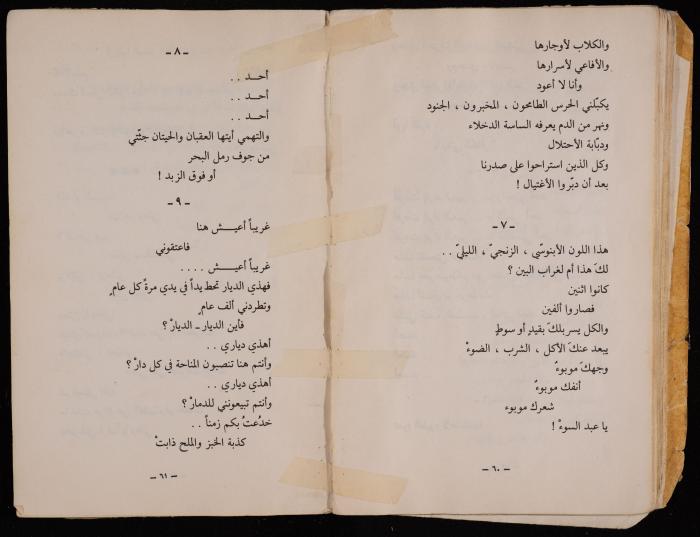 والكلاب لأوجارها
والأفاعي لأسرارها
وأنا لا أعود
يكبّلني الحرس الطامحون ، المخبرون ، الجنود
ونهر من الدم يعرفه الساسة الدخلاء
ودبّابة الأحتلال
وكل الذين استراحوا على صدرنا
بعد أن دبّروا الأغتيال !
ـ ٧ ـ
هذا اللون الأبنوسّي ، الزنجيّ ، الليليّ . .
لكَ هذا أم لغراب البين ؟
كانوا اثنين
فصاروا ألفين
والكل يسربلكَ بقيدٍ أو سوطٍ
يبعد عنكَ الأكل ، الشرب ، الضوءْ
وجهكَ موبوءٌ
أنفك موبوءٌ
شعرك موبوء
يا عبد السوءْ !
ـ ٦٠ ـ
ـ ٨ ـ
أحـــد . .
أحـــد . .
أحـــد . .
والتهمي أيتها العقبان والحيتان جثّتي
من جوف رمل البحر
أو فوق الزبد !
ـ ٩ ـ
غريباً أعيـــش هنا
فاعتقوني
غريباً أعيـــش . . . .
فهذي الديار تحط يداً في يدي مرةً كل عامٍ
وتطردني ألف عامٍ
فأين الديار ـ الديارْ ؟
أهذي دياري . .
وأنتم هنا تنصبون المناحة في كل دارْ ؟
أهذي دياري . .
وأنتم تبيعونني للدمارْ ؟
خدُعتُ بكم زمناً . .
كذبة الخبز والملح ذابتْ
ـ ٦١ ـ